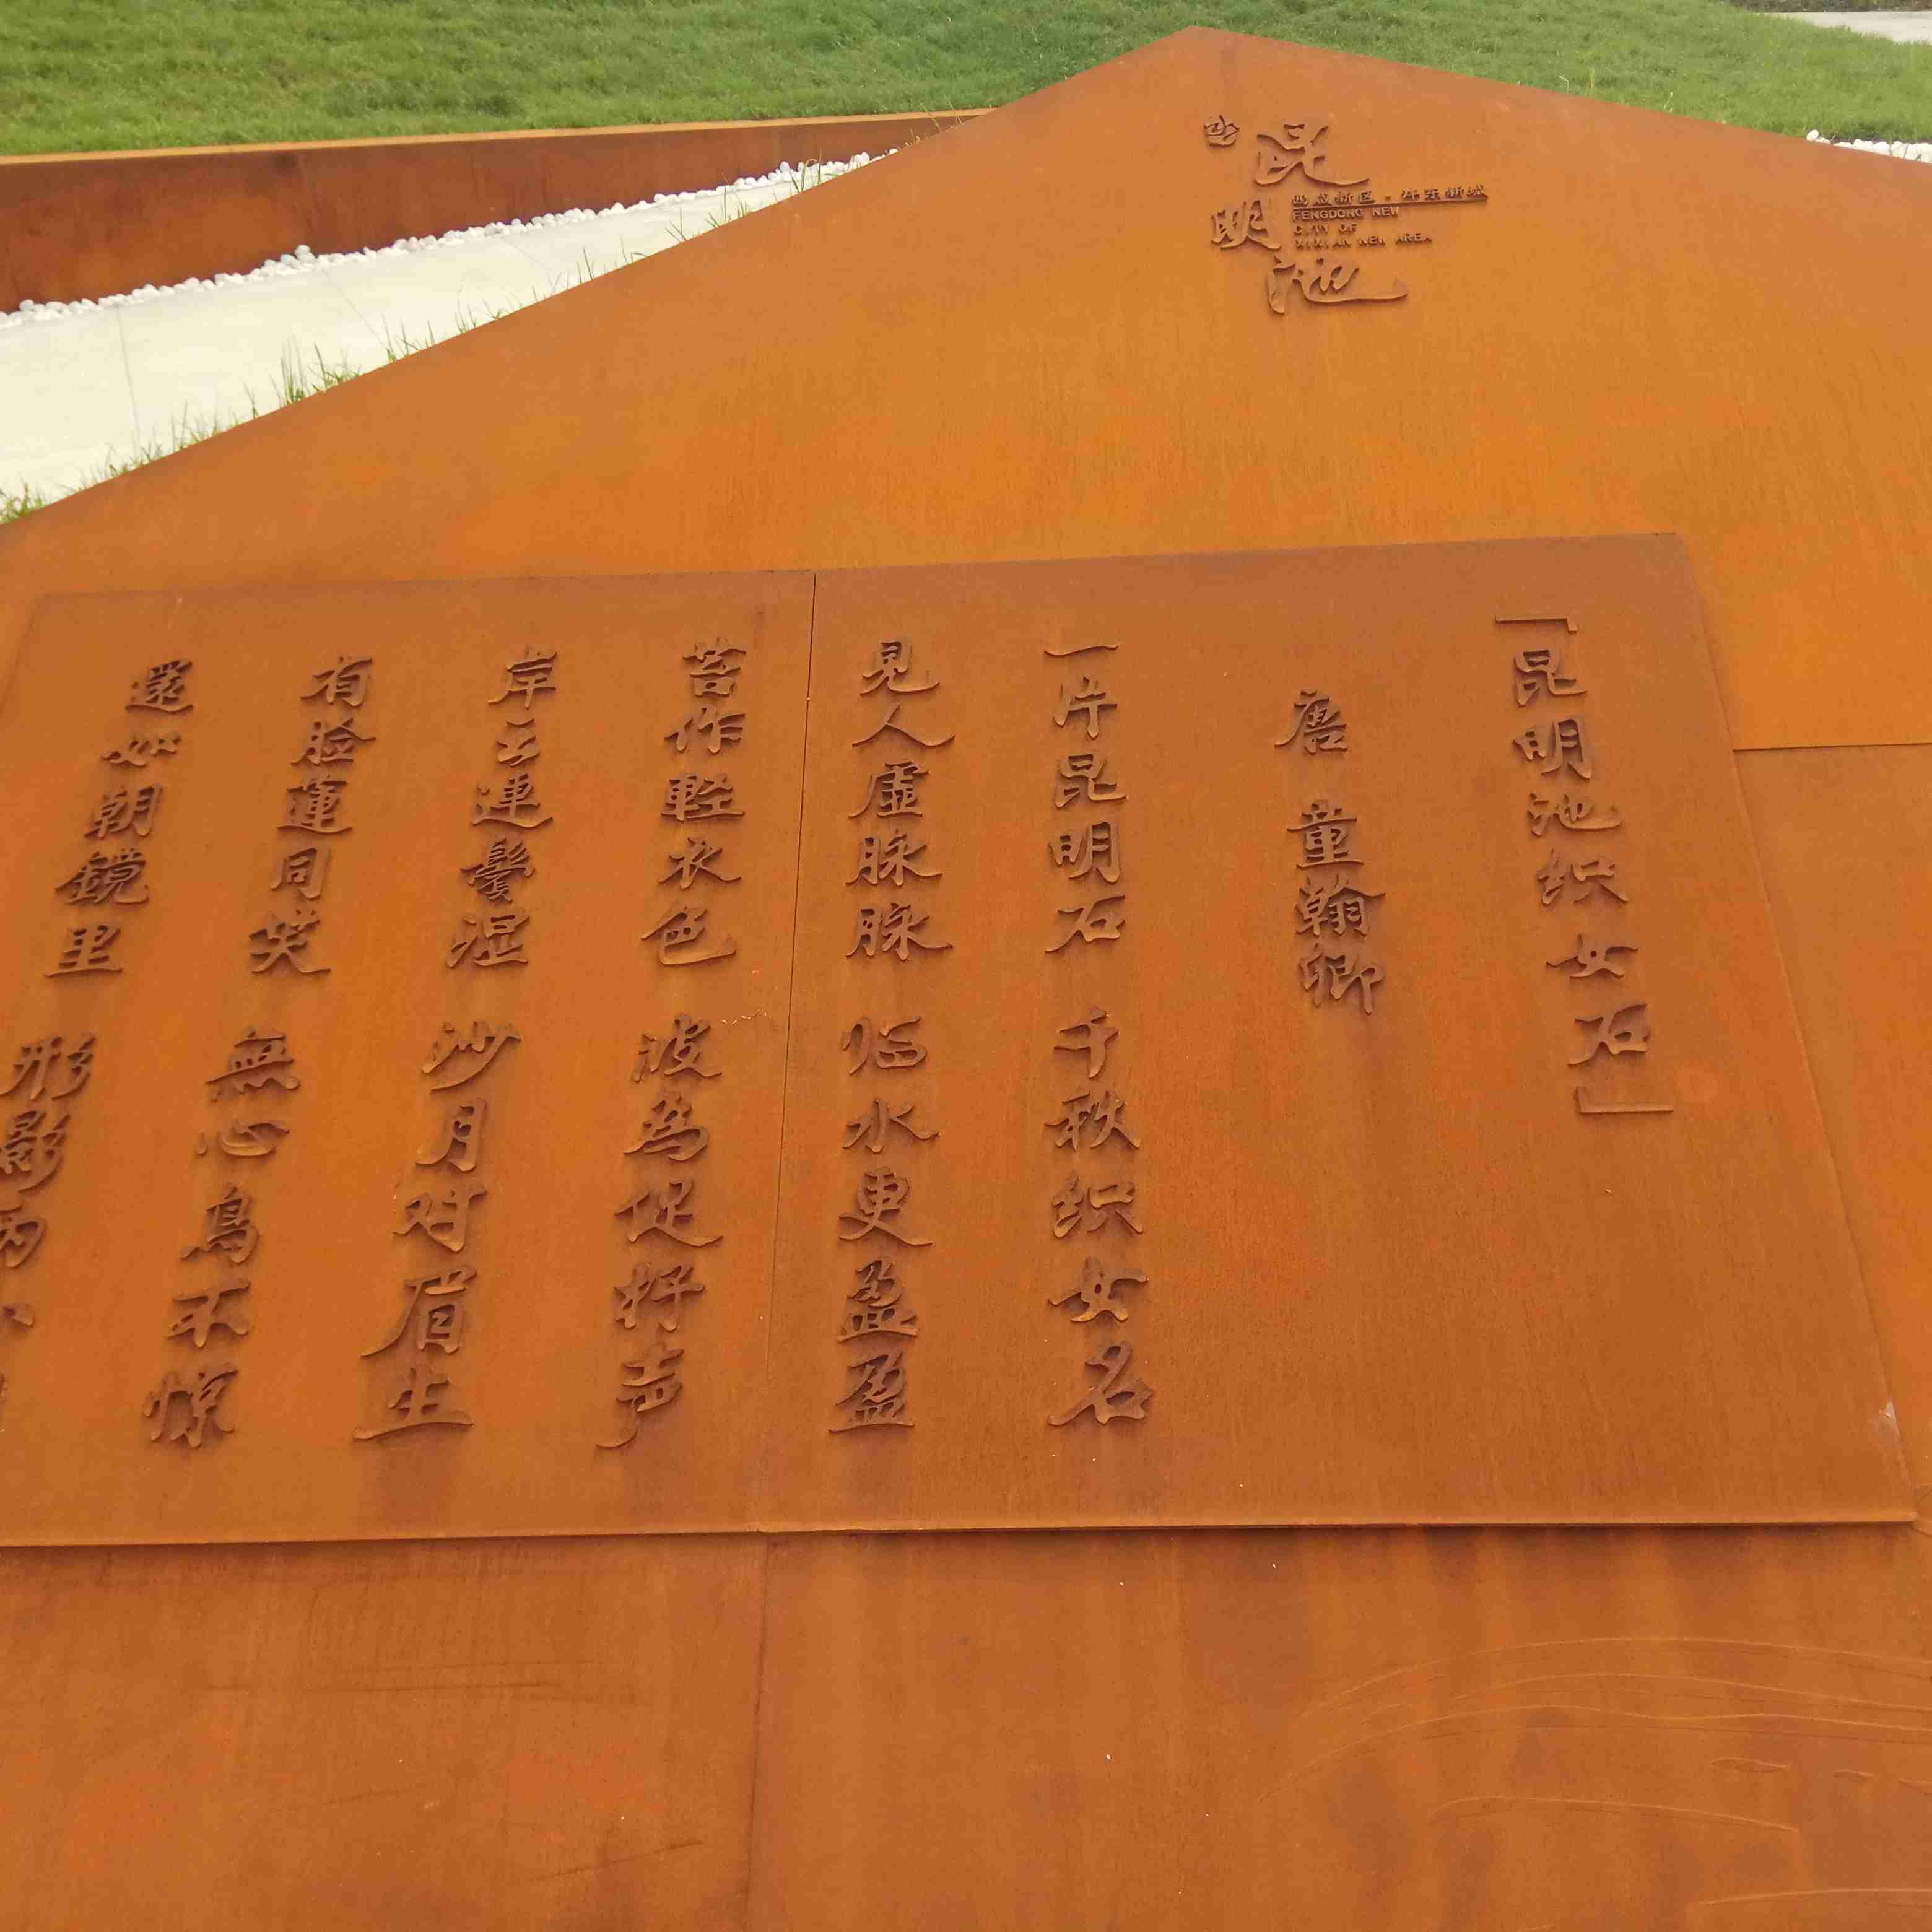 昆明池
西咸新区·沣东新城
FENGDONG NEW
CITY OF
XIXIAN NEW AREA
「昆明池织女石」
唐 童翰卿
一片昆明石 千秋织女名
見人虚脉脉 临水更盈盈
苔作軽衣色 波為促杼声
岸云連鬢湿 沙月对眉生
有脸蓮同笑 無心鳥不惊
還如朝鏡里 形影两